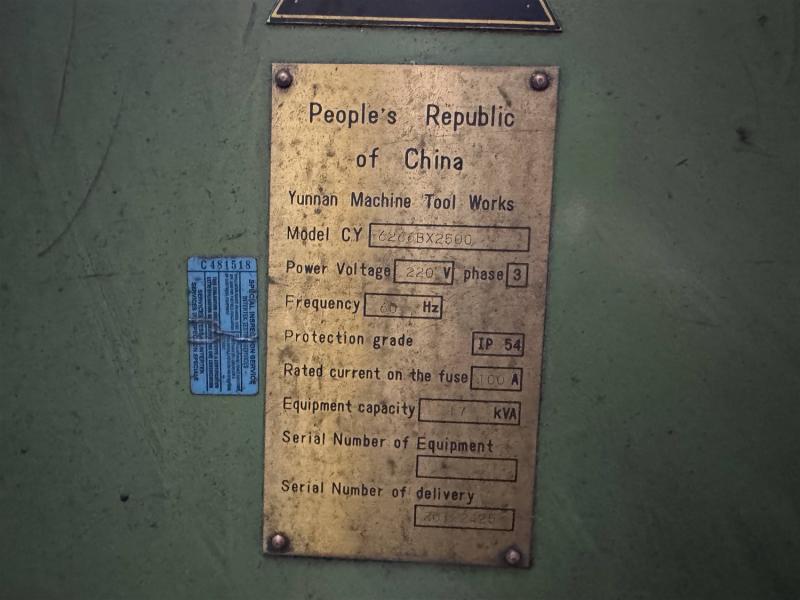 People's Republic
of China
Yunnan Machine Tool Works
Model C.Y 6266BX2500
Power Voltage 220 V phase 3
Frequency 60 Hz
Protection grade IP 54
Rated current on the fuse 100 A
Equipment capacity 17 kVA
Serial Number of Equipment
Serial Number of delivery
C481518
SPECIAL INSPECTION SERVICE